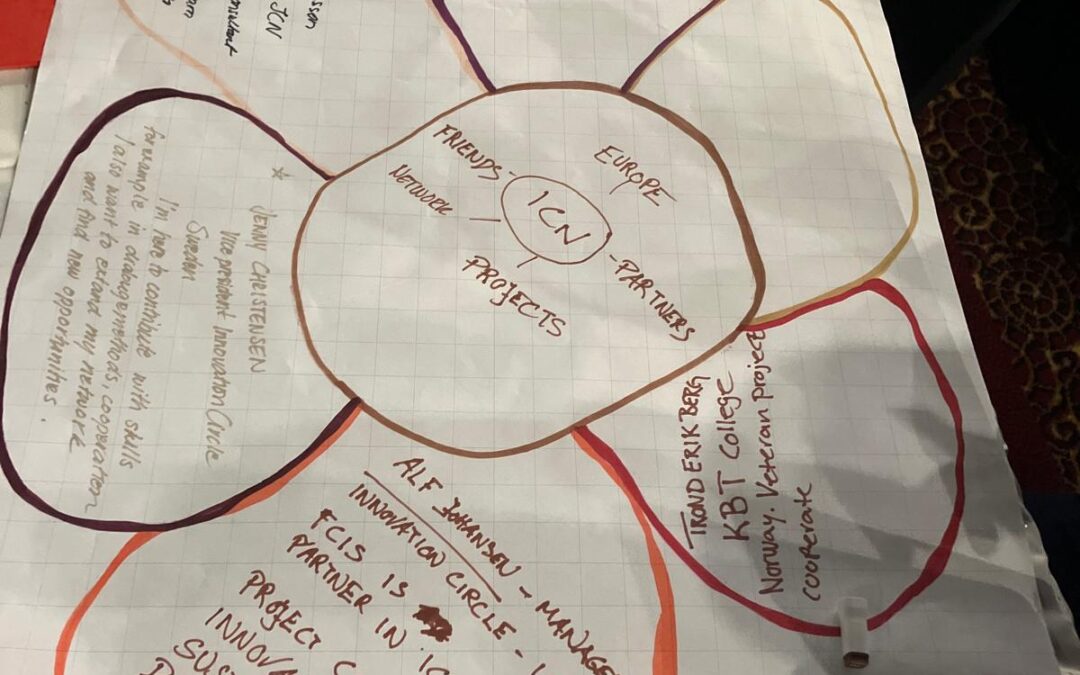 sson
JCN
onsultant
EUROPE
FRIENDS-
NETWORK
ICN
-PARTNERS
PROJECTS
☆ JENNY CHRISTENSEN
Vice president Innovation Circle
Sweden
I'm here to contribute with skills
for example in dialogemethods, cooperation
I also want to extand my network
and find new opportunities.
TROND ERIK BERG
KBT College
Norway. Veteran project
cooperate
ALF JOHANSEN - MANAGE
INNOVATION CIRCLE -
FCIS IS
PARTNER IN IC
PROJECT C
INNOVA
SUS